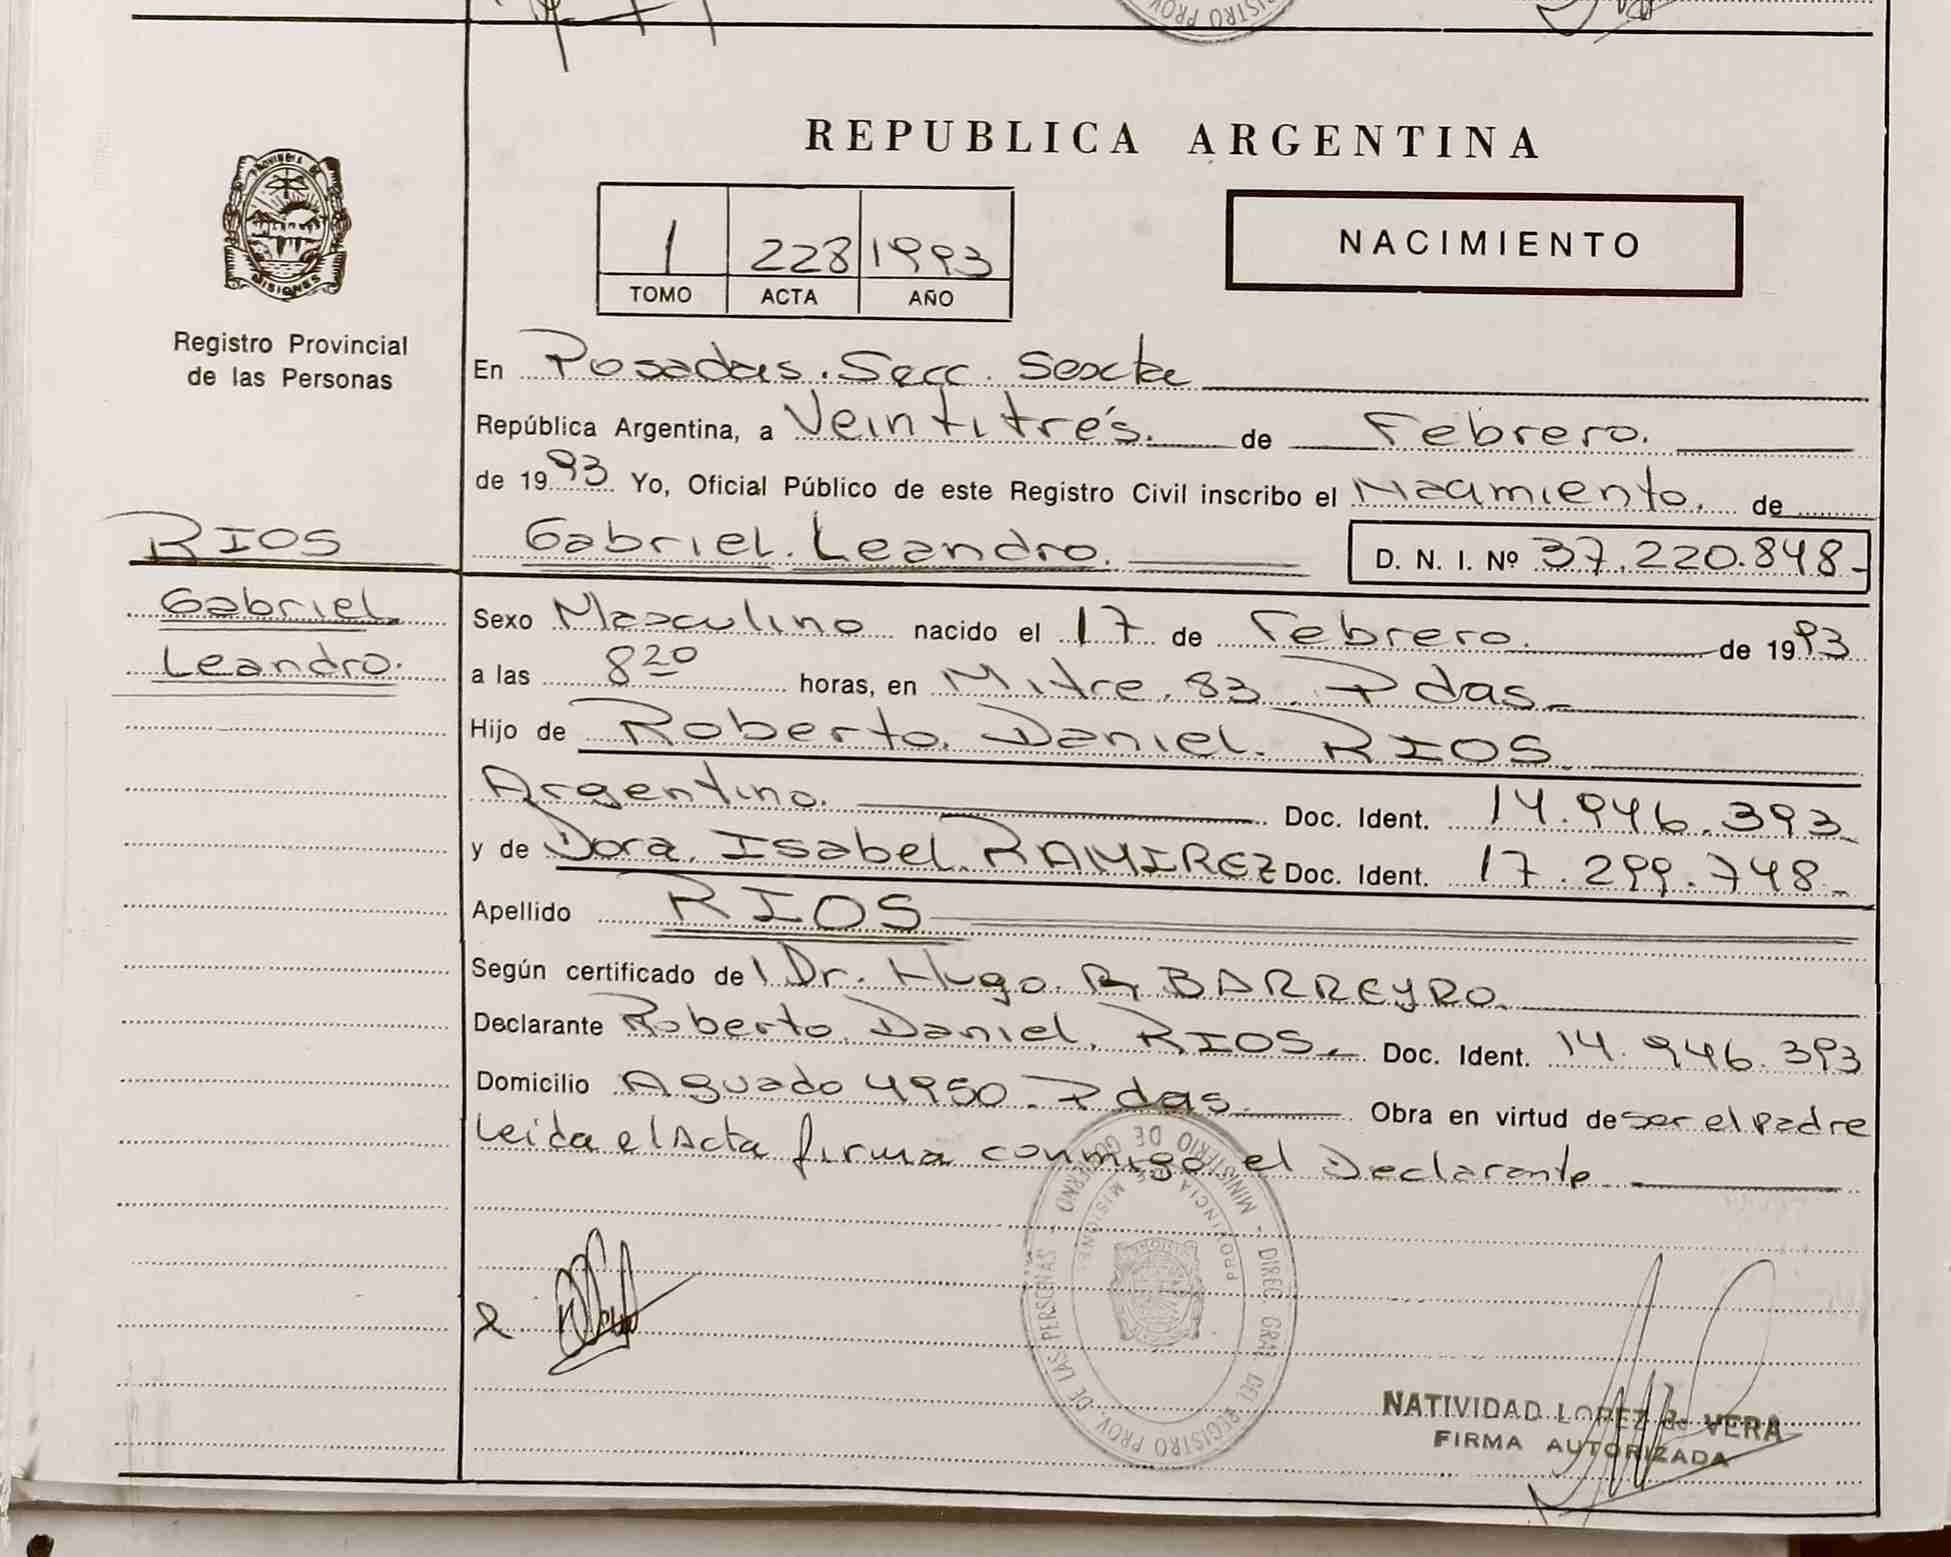 REPUBLICA ARGENTINA
PROVINCIA DE
MISIONES
Registro Provincial
de las Personas
1 228 1993
TOMO ACTA AÑO
NACIMIENTO
En Posadas. Secc. Sexta
República Argentina, a Veintitrés. de Febrero.
de 1993 Yo, Oficial Público de este Registro Civil inscribo el Nacimiento. de
RIOS
Gabriel
Leandro.
Gabriel. Leandro. D. N. I. Nº 37.220.848-
Sexo Masculino nacido el 17 de Febrero. de 1993
a las 8 20 horas, en Mitre. 83. Pdas-
Hijo de Roberto. Daniel. RIOS
Argentino. Doc. Ident. 14.946.393-
y de Dora. Isabel. RAMIREZ Doc. Ident. 17.299.748-
Apellido RIOS
Según certificado del Dr. Hugo. R. BARREYRO.
Declarante Roberto. Daniel. RIOS.- Doc. Ident. 14.946.393
Domicilio Aguado 4950. Pdas. Obra en virtud de ser el padre
Leida el Acta firma conmigo el Declarante
MINISTERIO DE GOBIERNO - DIREC. GRAL. DEL REGISTRO PROV. DE LAS PERSONAS
PROVINCIA DE MISIONES
NATIVIDAD LOPEZ de VERA
FIRMA AUTORIZADA